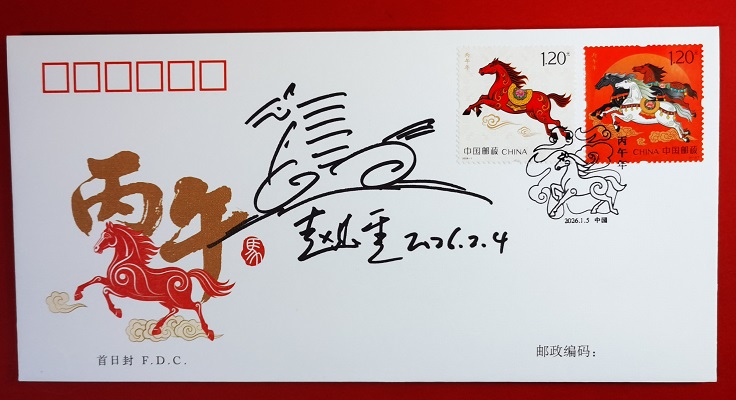 丙午年
1.20元
中国邮政 CHINA
丙午年
1.20元
中国邮政 CHINA
丙午年
2026.1.5 中国
丙午
馬
2026.2.4
首日封 F.D.C.
邮政编码：